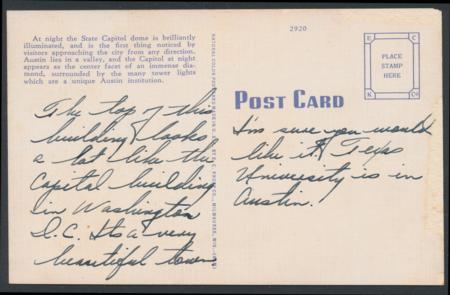 At night the State Capitol dome is brilliantly
illuminated, and is the first thing noticed by
visitors approaching the city from any direction.
Austin lies in a valley, and the Capitol at night
appears as the center facet of an immense dia-
mond, surrounded by the many tower lights
which are a unique Austin institution.
The top of this
building looks
a lot like the
Capital building
in Washington
D.C. Its a very
beautiful town
2920
POST CARD
E C
PLACE
STAMP
HERE
K Co
I'm sure you would
like it. Texas
University is in
Austin.